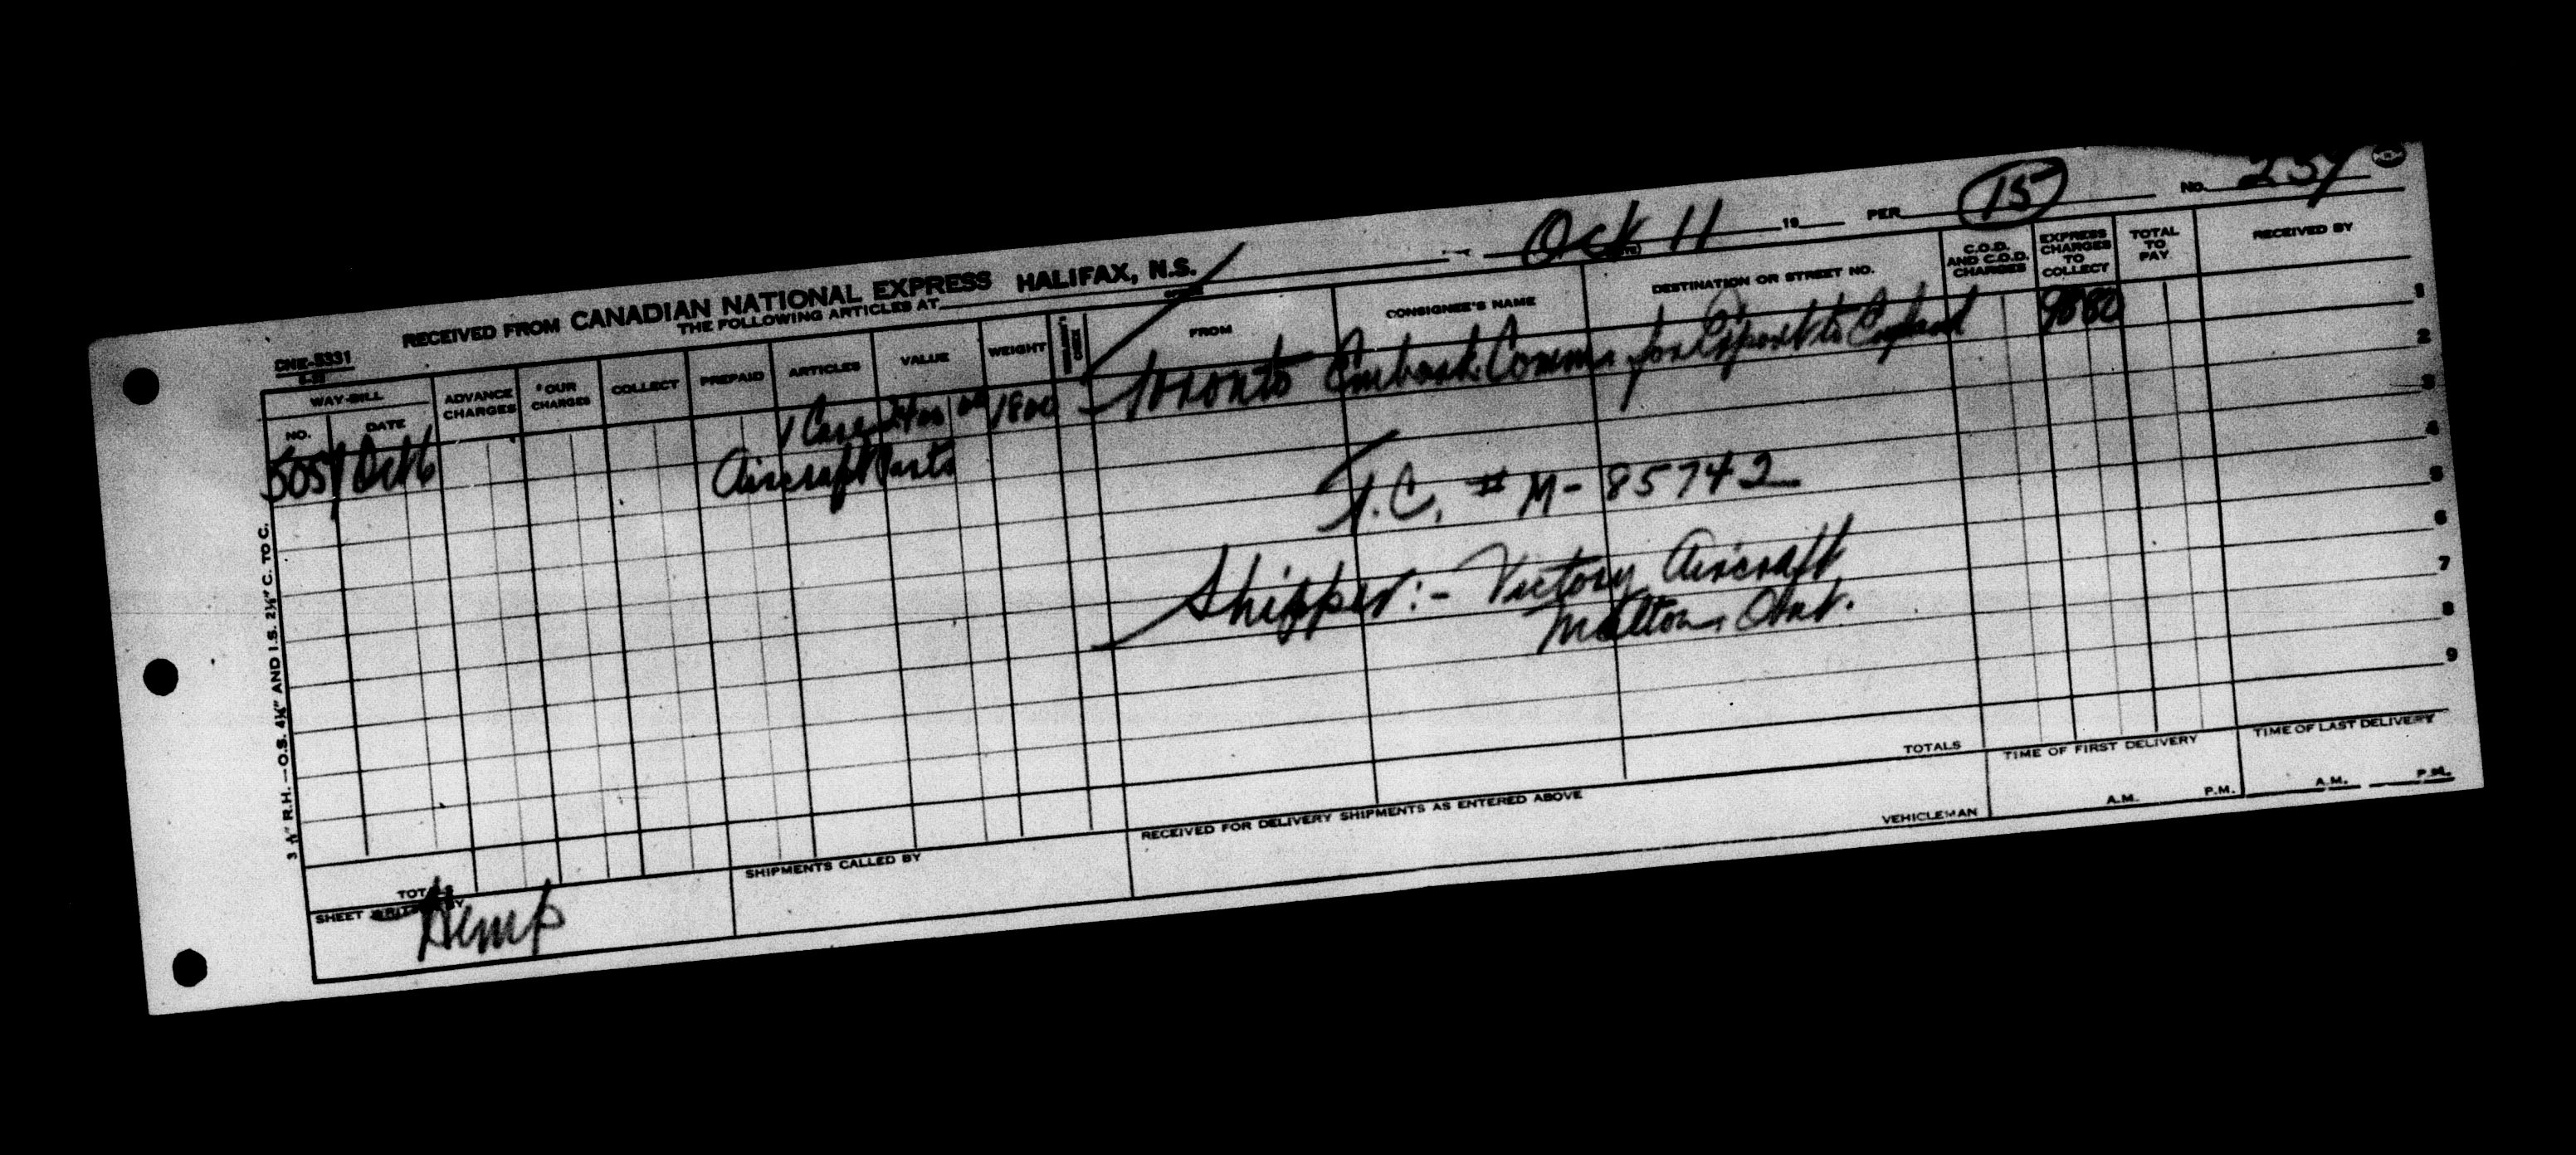 Oct 11 19 PER 15 No. 237
RECEIVED FROM CANADIAN NATIONAL EXPRESS HALIFAX, N.S.
THE FOLLOWING ARTICLES AT
CNE-5331
WAY-BILL ADVANCE CHARGES OUR CHARGES COLLECT PREPAID ARTICLES VALUE WEIGHT FROM CONSIGNEE'S NAME DESTINATION OR STREET NO. C.O.D. AND C.O.D. CHARGES EXPRESS CHARGES TO COLLECT TOTAL TO PAY RECEIVED BY
NO. DATE
5051 Oct 6 1 Case 2400 00 1800 Toronto Embark. Comm. for Export to England 90 80
Aircraft Parts
T.C. # M-85742
Shipper:- Victory Aircraft
Malton Ont.
1
2
3
4
5
6
7
8
9
3 R.H.—O.S. 4¼" AND I.S. 2½" C. TO C.
TOTALS
TOTALS
SHEET WRITTEN BY Hemp
SHIPMENTS CALLED BY
RECEIVED FOR DELIVERY SHIPMENTS AS ENTERED ABOVE
VEHICLEMAN
TIME OF FIRST DELIVERY
A.M. P.M.
TIME OF LAST DELIVERY
A.M. P.M.